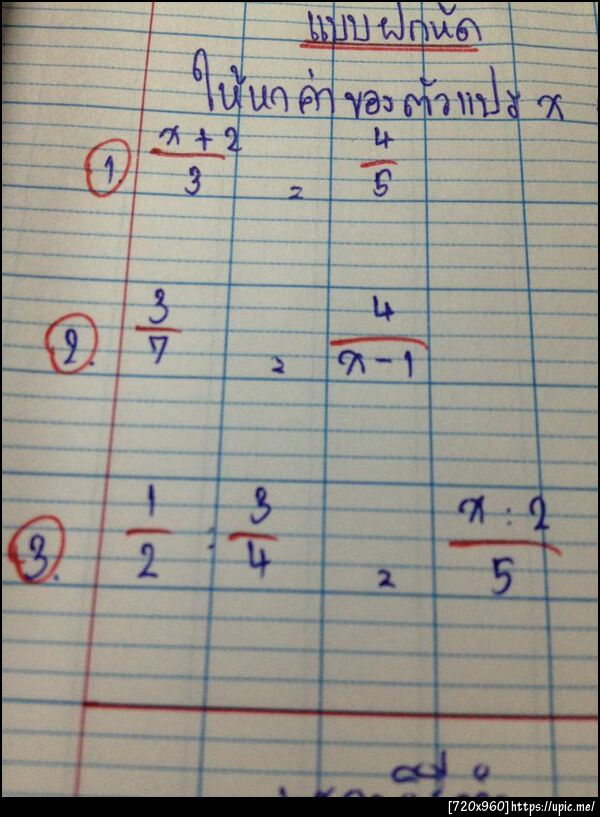 แบบฝึกหัด
ให้หาค่าของตัวแปร x
1. x + 2 / 3 = 4 / 5
2. 3 / 7 = 4 / x - 1
3. 1 / 2 : 3 / 4 = x : 2 / 5
[720x960]https://upic.me/